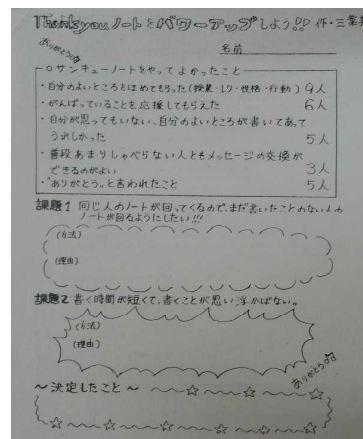 Thank you ノートをパワーアップしよう!!
ありがとう
名前
サンキューノートをやってよかったこと
・自分のよいところをほめてもらった(授業・しり・性格・行動) 9人
・がんばっていることを応援してもらえた 6人
・自分が思ってもいない、自分のよいところが書いてあって
うれしかった 5人
・普段あまりしゃべらない人ともメッセージの交換が
できるのがよい 3人
・"ありがとう"と言われたこと 5人
課題1 同じ人のノートが回ってくるので、まだ書いたことのない人の
ノートが回るようにしたい!!!
(方法)
(理由)
課題2 書く時間が短くて、書くことが思い浮かばない。
(方法)
(理由)
ありがとう
〜決定したこと〜